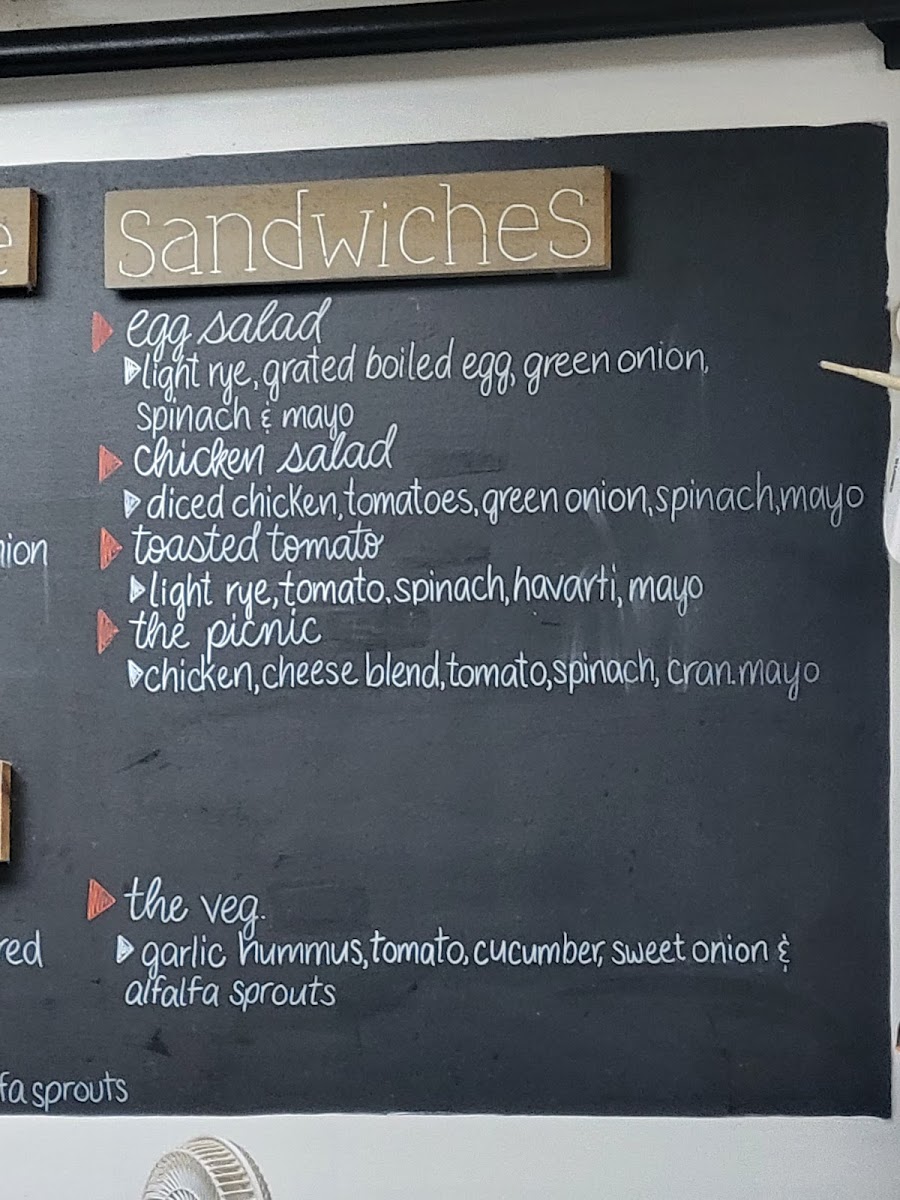 e
Sandwiches
egg salad
light rye, grated boiled egg, green onion,
spinach & mayo
chicken salad
diced chicken, tomatoes, green onion, spinach, mayo
nion
toasted tomato
light rye, tomato, spinach, havarti, mayo
the picnic
chicken, cheese blend, tomato, spinach, cran.mayo
the veg.
red
garlic hummus, tomato, cucumber, sweet onion &
alfalfa sprouts
fa sprouts